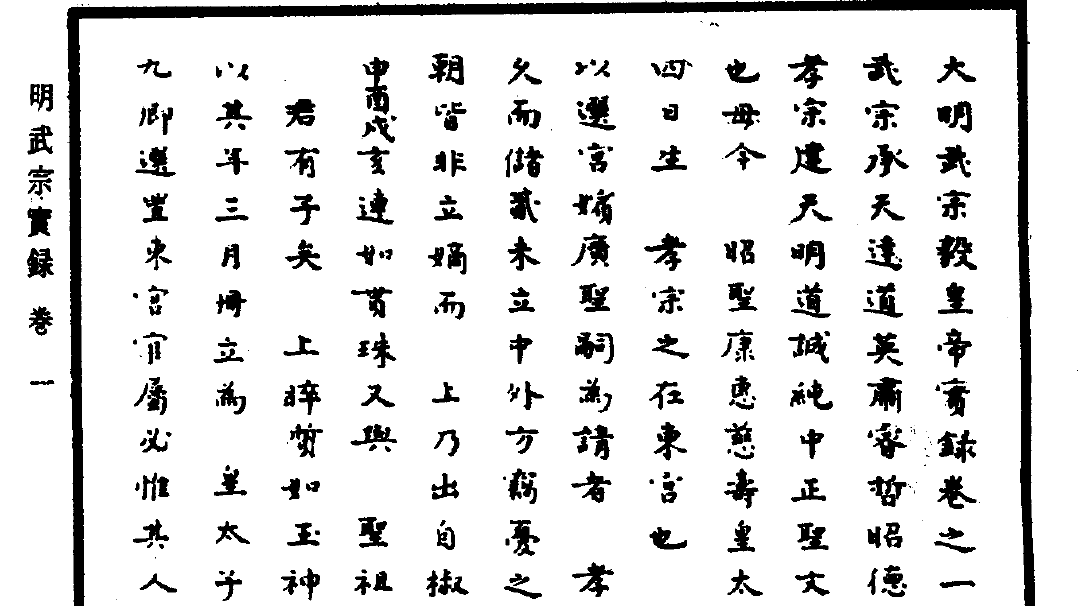 大明武宗毅皇帝實錄卷之一
武宗承天達道英肅睿哲昭德
孝宗建天明道誠純中正聖文
也母今　昭聖康惠慈壽皇太
四日生　孝宗之在東宮也
以選宮嬪廣聖嗣為請者　孝
久而儲貳未立中外方竊憂之
朝皆非立嫡而　上乃出自椒
申酉戌亥連如貫珠又與　聖祖
君有子矣　上粹質如玉神
以其年三月冊立為　皇太子
九卿選豐東宮官屬必惟其人
明武宗實録　卷一